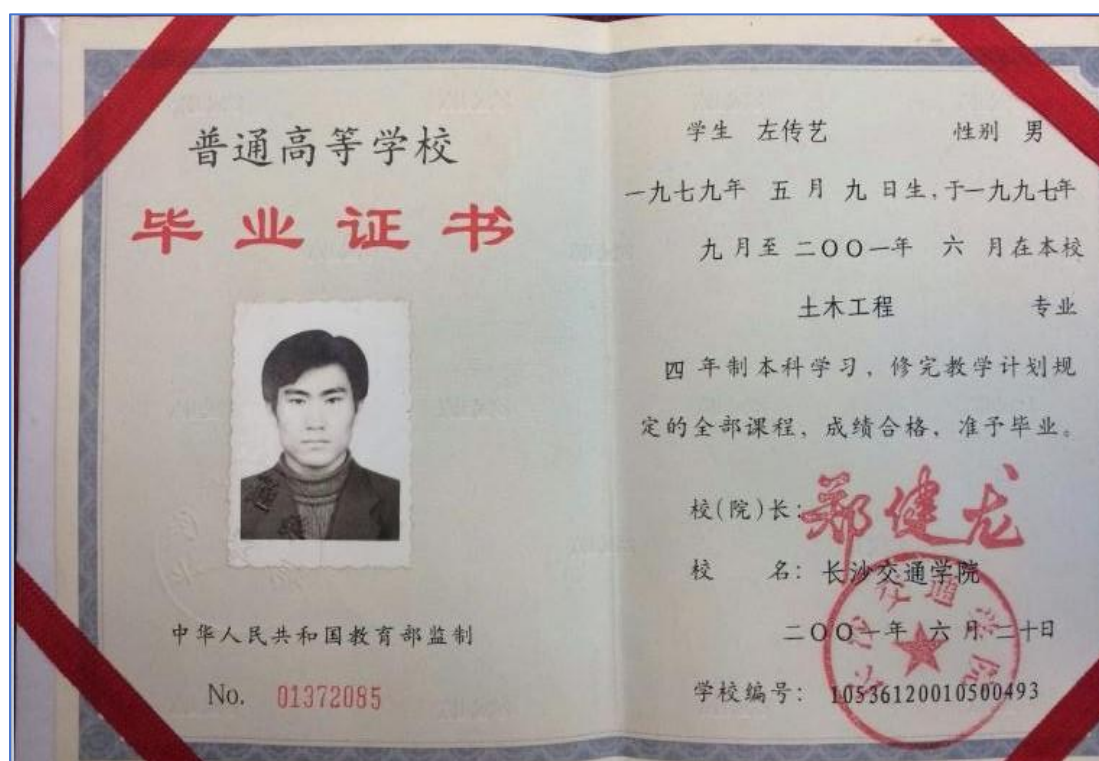 普通高等学校
毕业证书
中华人民共和国教育部监制
No. 01372085
学生 左传艺 性别 男
一九七九年 五 月 九 日生,于一九九七年
九 月至 二〇〇一年 六 月在本校
土木工程 专业
四 年制本科学习，修完教学计划规
定的全部课程，成绩合格，准予毕业。
校(院)长: 郑健龙
校 名: 长沙交通学院
二〇〇一年 六 月 二十日
学校编号: 10536120010500493
长沙交通学院